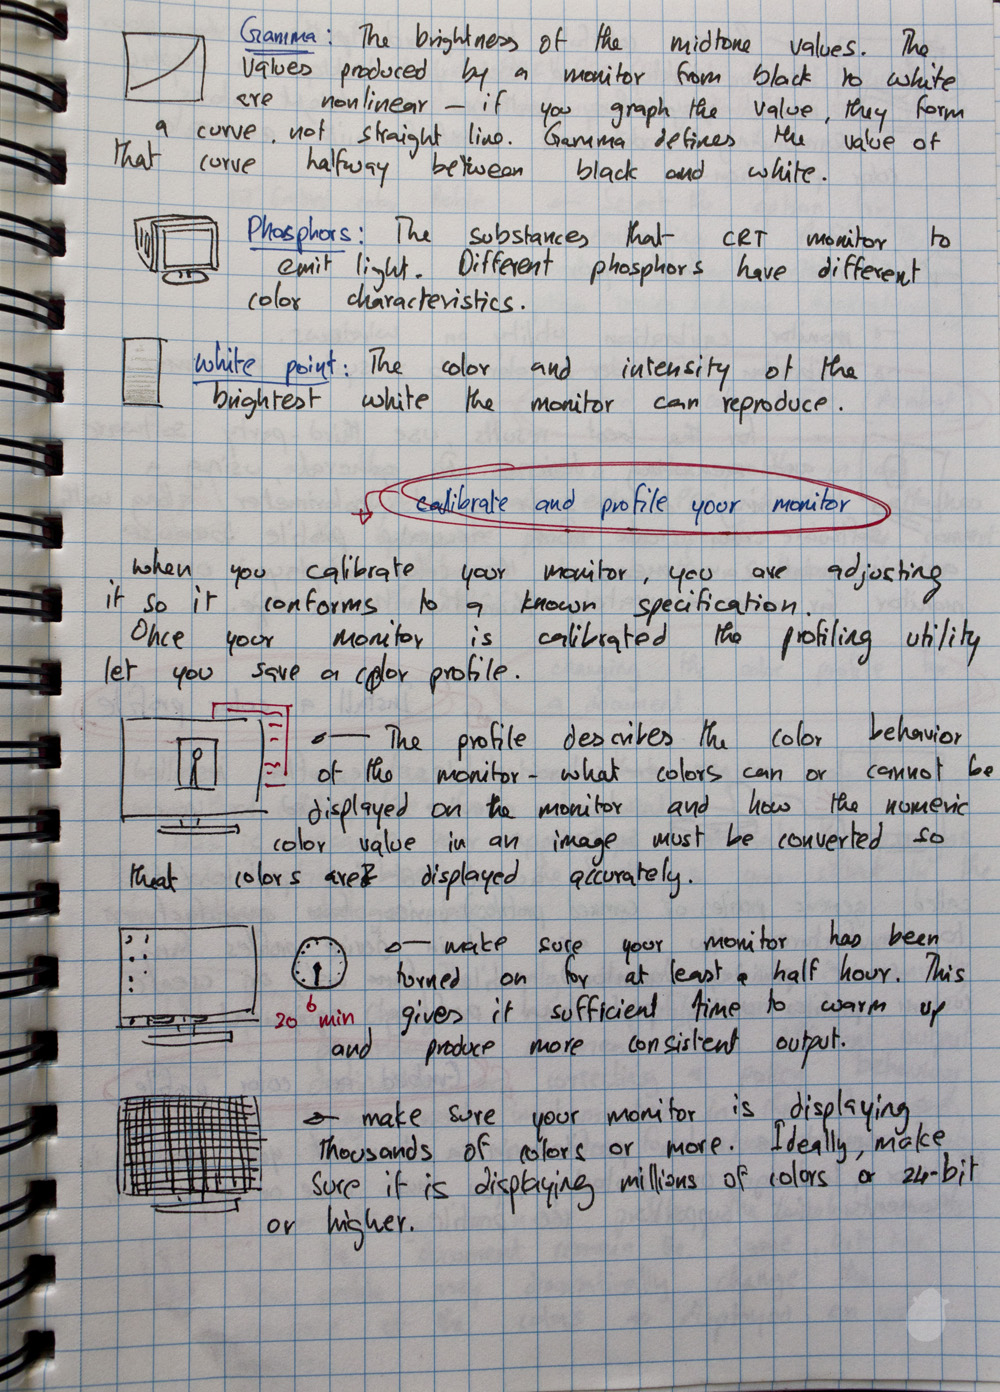 Gamma: The brightness of the midtone values. The
values produced by a monitor from black to white
are nonlinear – if you graph the value, they form
a curve, not straight line. Gamma defines the value of
that curve halfway between black and white.
Phosphors: The substances that CRT monitor to
emit light. Different phosphors have different
color characteristics.
White point: The color and intensity of the
brightest white the monitor can reproduce.
calibrate and profile your monitor
when you calibrate your monitor, you are adjusting
it so it conforms to a known specification.
Once your monitor is calibrated the profiling utility
let you save a color profile.
The profile describes the color behavior
of the monitor – what colors can or cannot be
displayed on the monitor and how the numeric
color value in an image must be converted so
that colors are displayed accurately.
make sure your monitor has been
turned on for at least a half hour. This
6
30 min
gives it sufficient time to warm up
and produce more consistent output.
make sure your monitor is displaying
thousands of colors or more. Ideally, make
sure it is displaying millions of colors or 24-bit
or higher.